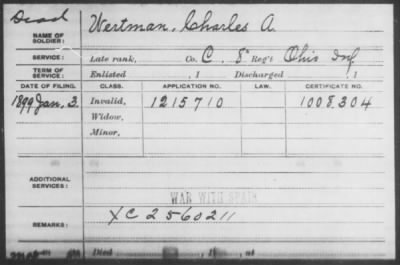 Dead
NAME OF SOLDIER: Wertman, Charles A.
SERVICE: Late rank, Co. C, 8" Reg't Ohio Inf
TERM OF SERVICE: Enlisted , 1 Discharged , 1
DATE OF FILING. CLASS. APPLICATION NO. LAW. CERTIFICATE NO.
1899 Jan. 3. Invalid, 1215710 1008.304
Widow,
Minor,
ADDITIONAL SERVICES:
WAR WITH SPAIN
REMARKS: XC 2560211
Died , 1 , at